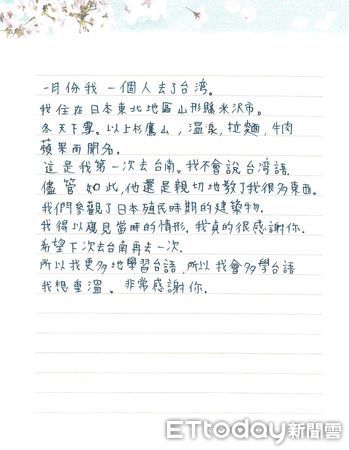 一月份我 一個人去了台湾。
我住在日本東北地區山形縣米沢市。
冬天下雪。以上杉鷹山，溫泉，拉麵，牛肉
蘋果而聞名。
這是我第一次去台南。我不會說台湾語.
儘管如此,他還是親切地教了我很多東西。
我們參觀了日本殖民時期的建築物.
我得以窺見當時的情形.我真的很感謝你.
希望下次去台南再去一次.
所以我更多地學習台語,所以我會多學台語
我想重溫。非常感謝你.
ETtoday新聞雲